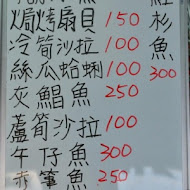 焗烤扇貝 150
冷筍沙拉 100
絲瓜蛤蜊 100
灰鯧魚 250
蘆筍沙拉 100
午仔魚 300
魚 250
杉
魚
300